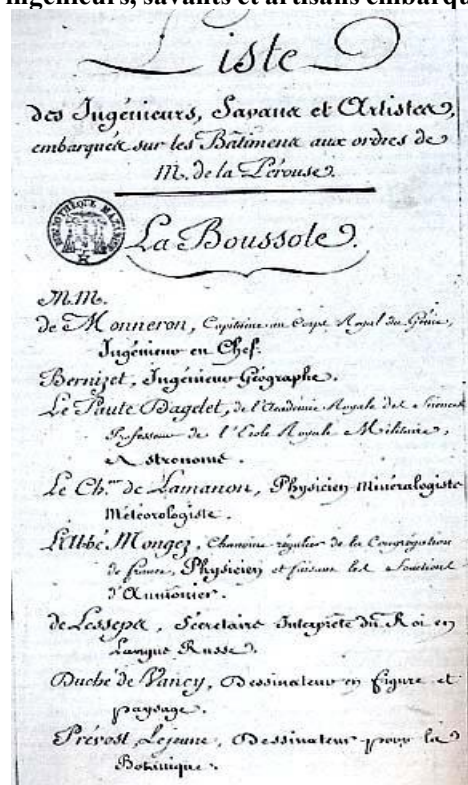 ingénieurs, savants et artisans embarqu
Liste
des Ingénieurs, Savans et Artistes,
embarqués sur les Bâtimens aux ordres de
M. de la Pérouse.
BIBLIOTHÈQUE MAZARINE
La Boussole.
M.M.
de Monneron, Capitaine au Corps Royal du Génie,
Ingénieur en Chef.
Bernizet, Ingénieur Géographe.
Le Paute Dagelet, de l'Académie Royale des Sciences
Professeur de l'Ecole Royale Militaire,
Astronome.
Le Ch.er de Lamanon, Physicien Minéralogiste
Météorologiste.
L'Abbé Mongez, Chanoine régulier de la Congrégation
de france, Physicien et faisant les fonctions
d'Aumonier.
de Lesseps, Sécretaire Interprète du Roi en
Langue Russe.
Duché de Vancy, Dessinateur en figure et
paysage.
Prévost, Lejeune, Dessinateur pour la
Botanique.